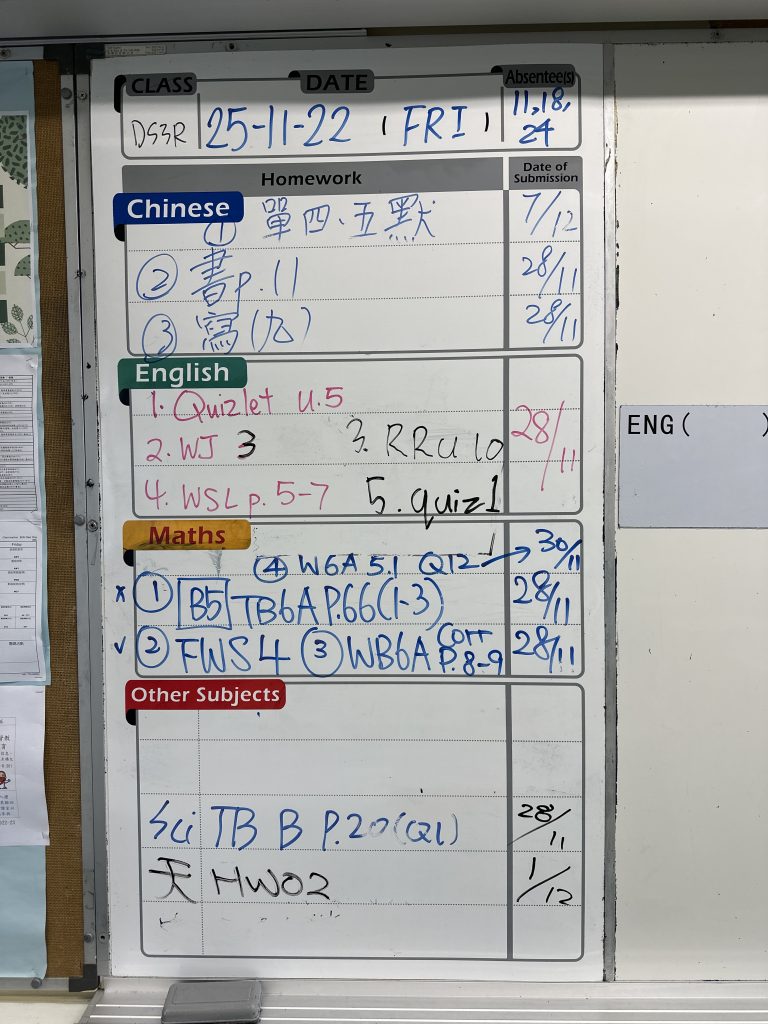 CLASS DATE Absentee(s)
DS3R 25-11-22 (FRI) 11,18,
24
Homework Date of
Submission
Chinese
① 單四、五默 7/12
② 書p.11 28/11
③ 寫(九) 28/11
English
1. Quizlet U.5
2. WJ 3 3. RRU10 28/11
4. WSL p.5-7 5. quiz1
Maths
④ W6A 5.1 Q12 → 30/11
x ① B5 TB6A P.66(1-3) 28/11
✓ ② FWS4 ③ WB6A Corr P.8-9 28/11
Other Subjects
Sci TB B P.20(Q1) 28/11
天 HW02 1/12
ENG( )